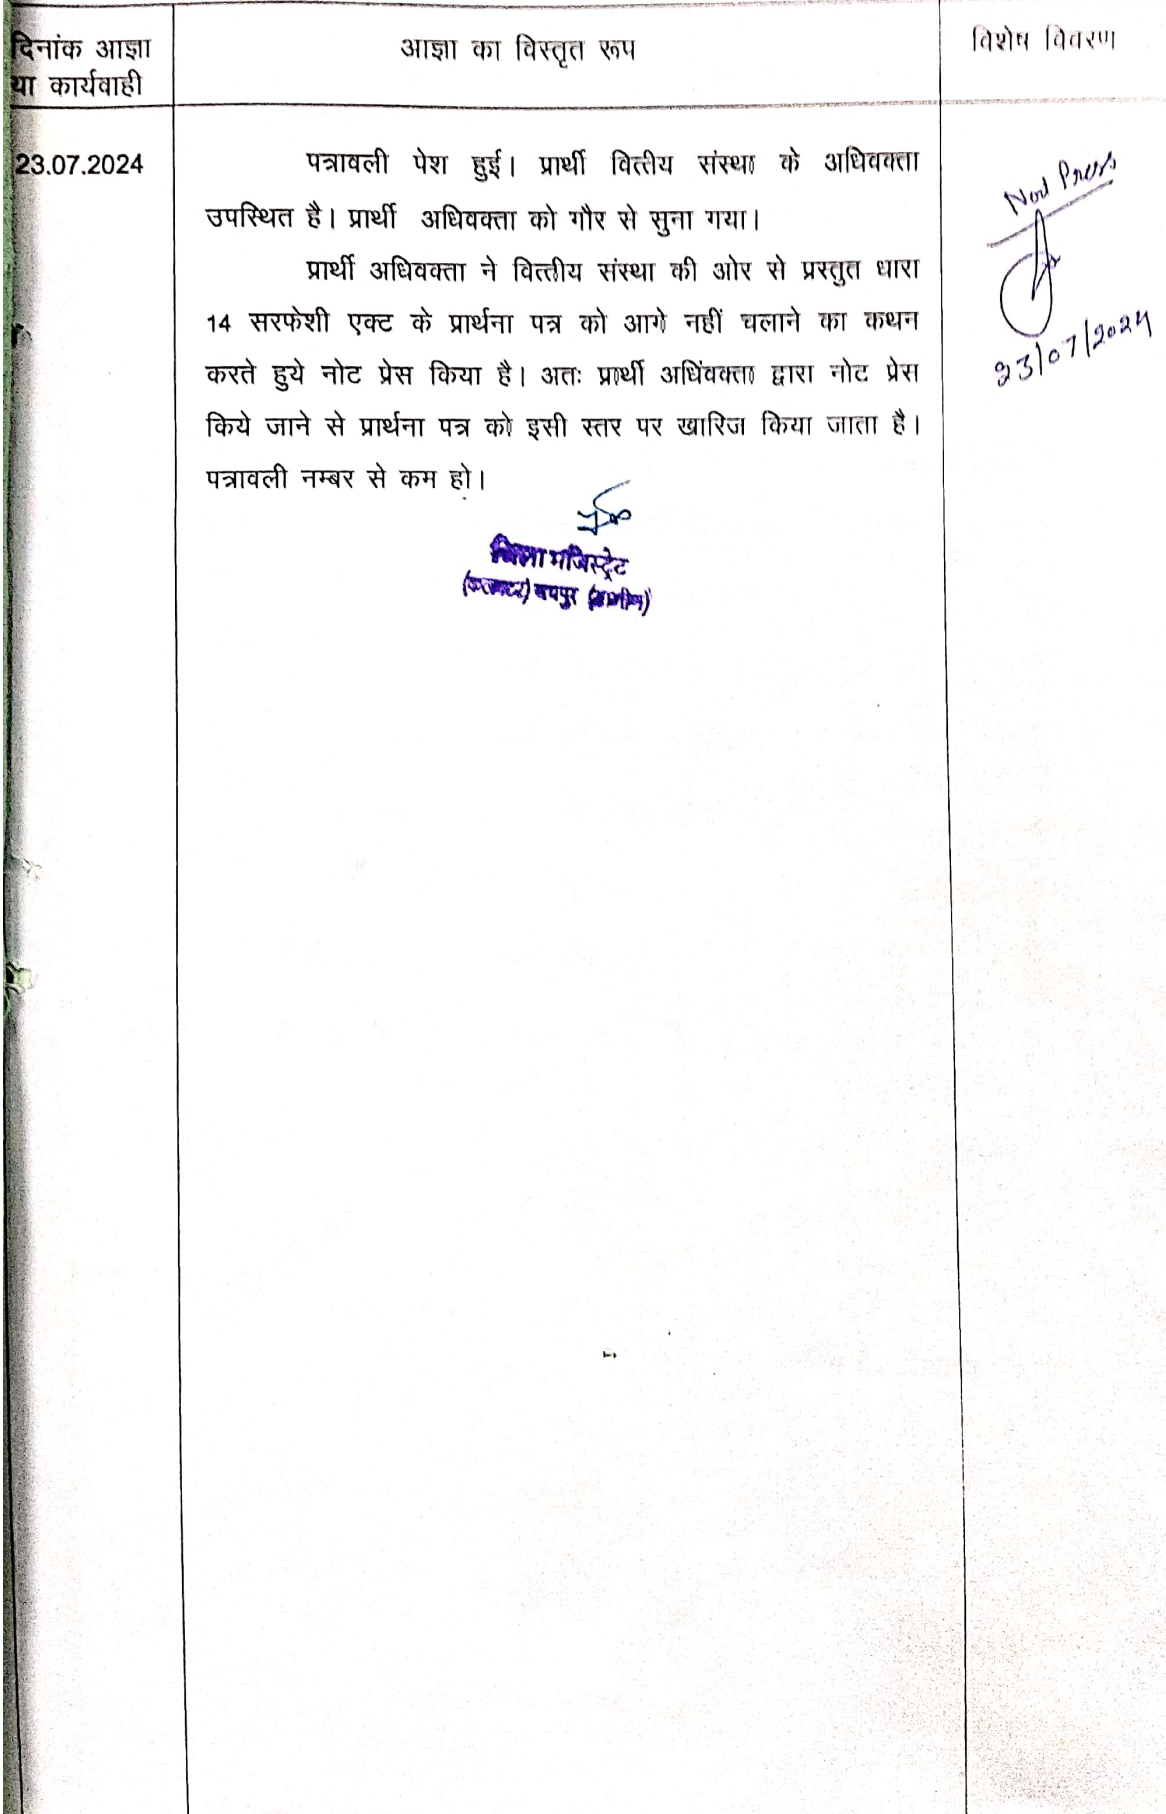 दिनांक आज्ञा
या कार्यवाही
आज्ञा का विस्तृत रूप
विशेष विवरण
23.07.2024
पत्रावली पेश हुई। प्रार्थी वित्तीय संस्था के अधिवक्ता
उपस्थित है। प्रार्थी अधिवक्ता को गौर से सुना गया।
प्रार्थी अधिवक्ता ने वित्तीय संस्था की ओर से प्रस्तुत धारा
14 सरफेशी एक्ट के प्रार्थना पत्र को आगे नहीं चलाने का कथन
करते हुये नोट प्रेस किया है। अतः प्रार्थी अधिंवक्ता द्वारा नोट प्रेस
किये जाने से प्रार्थना पत्र को इसी स्तर पर खारिज किया जाता है।
पत्रावली नम्बर से कम हो।
जिला मजिस्ट्रेट
(कलक्टर) जयपुर
Not Press
23/07/2024